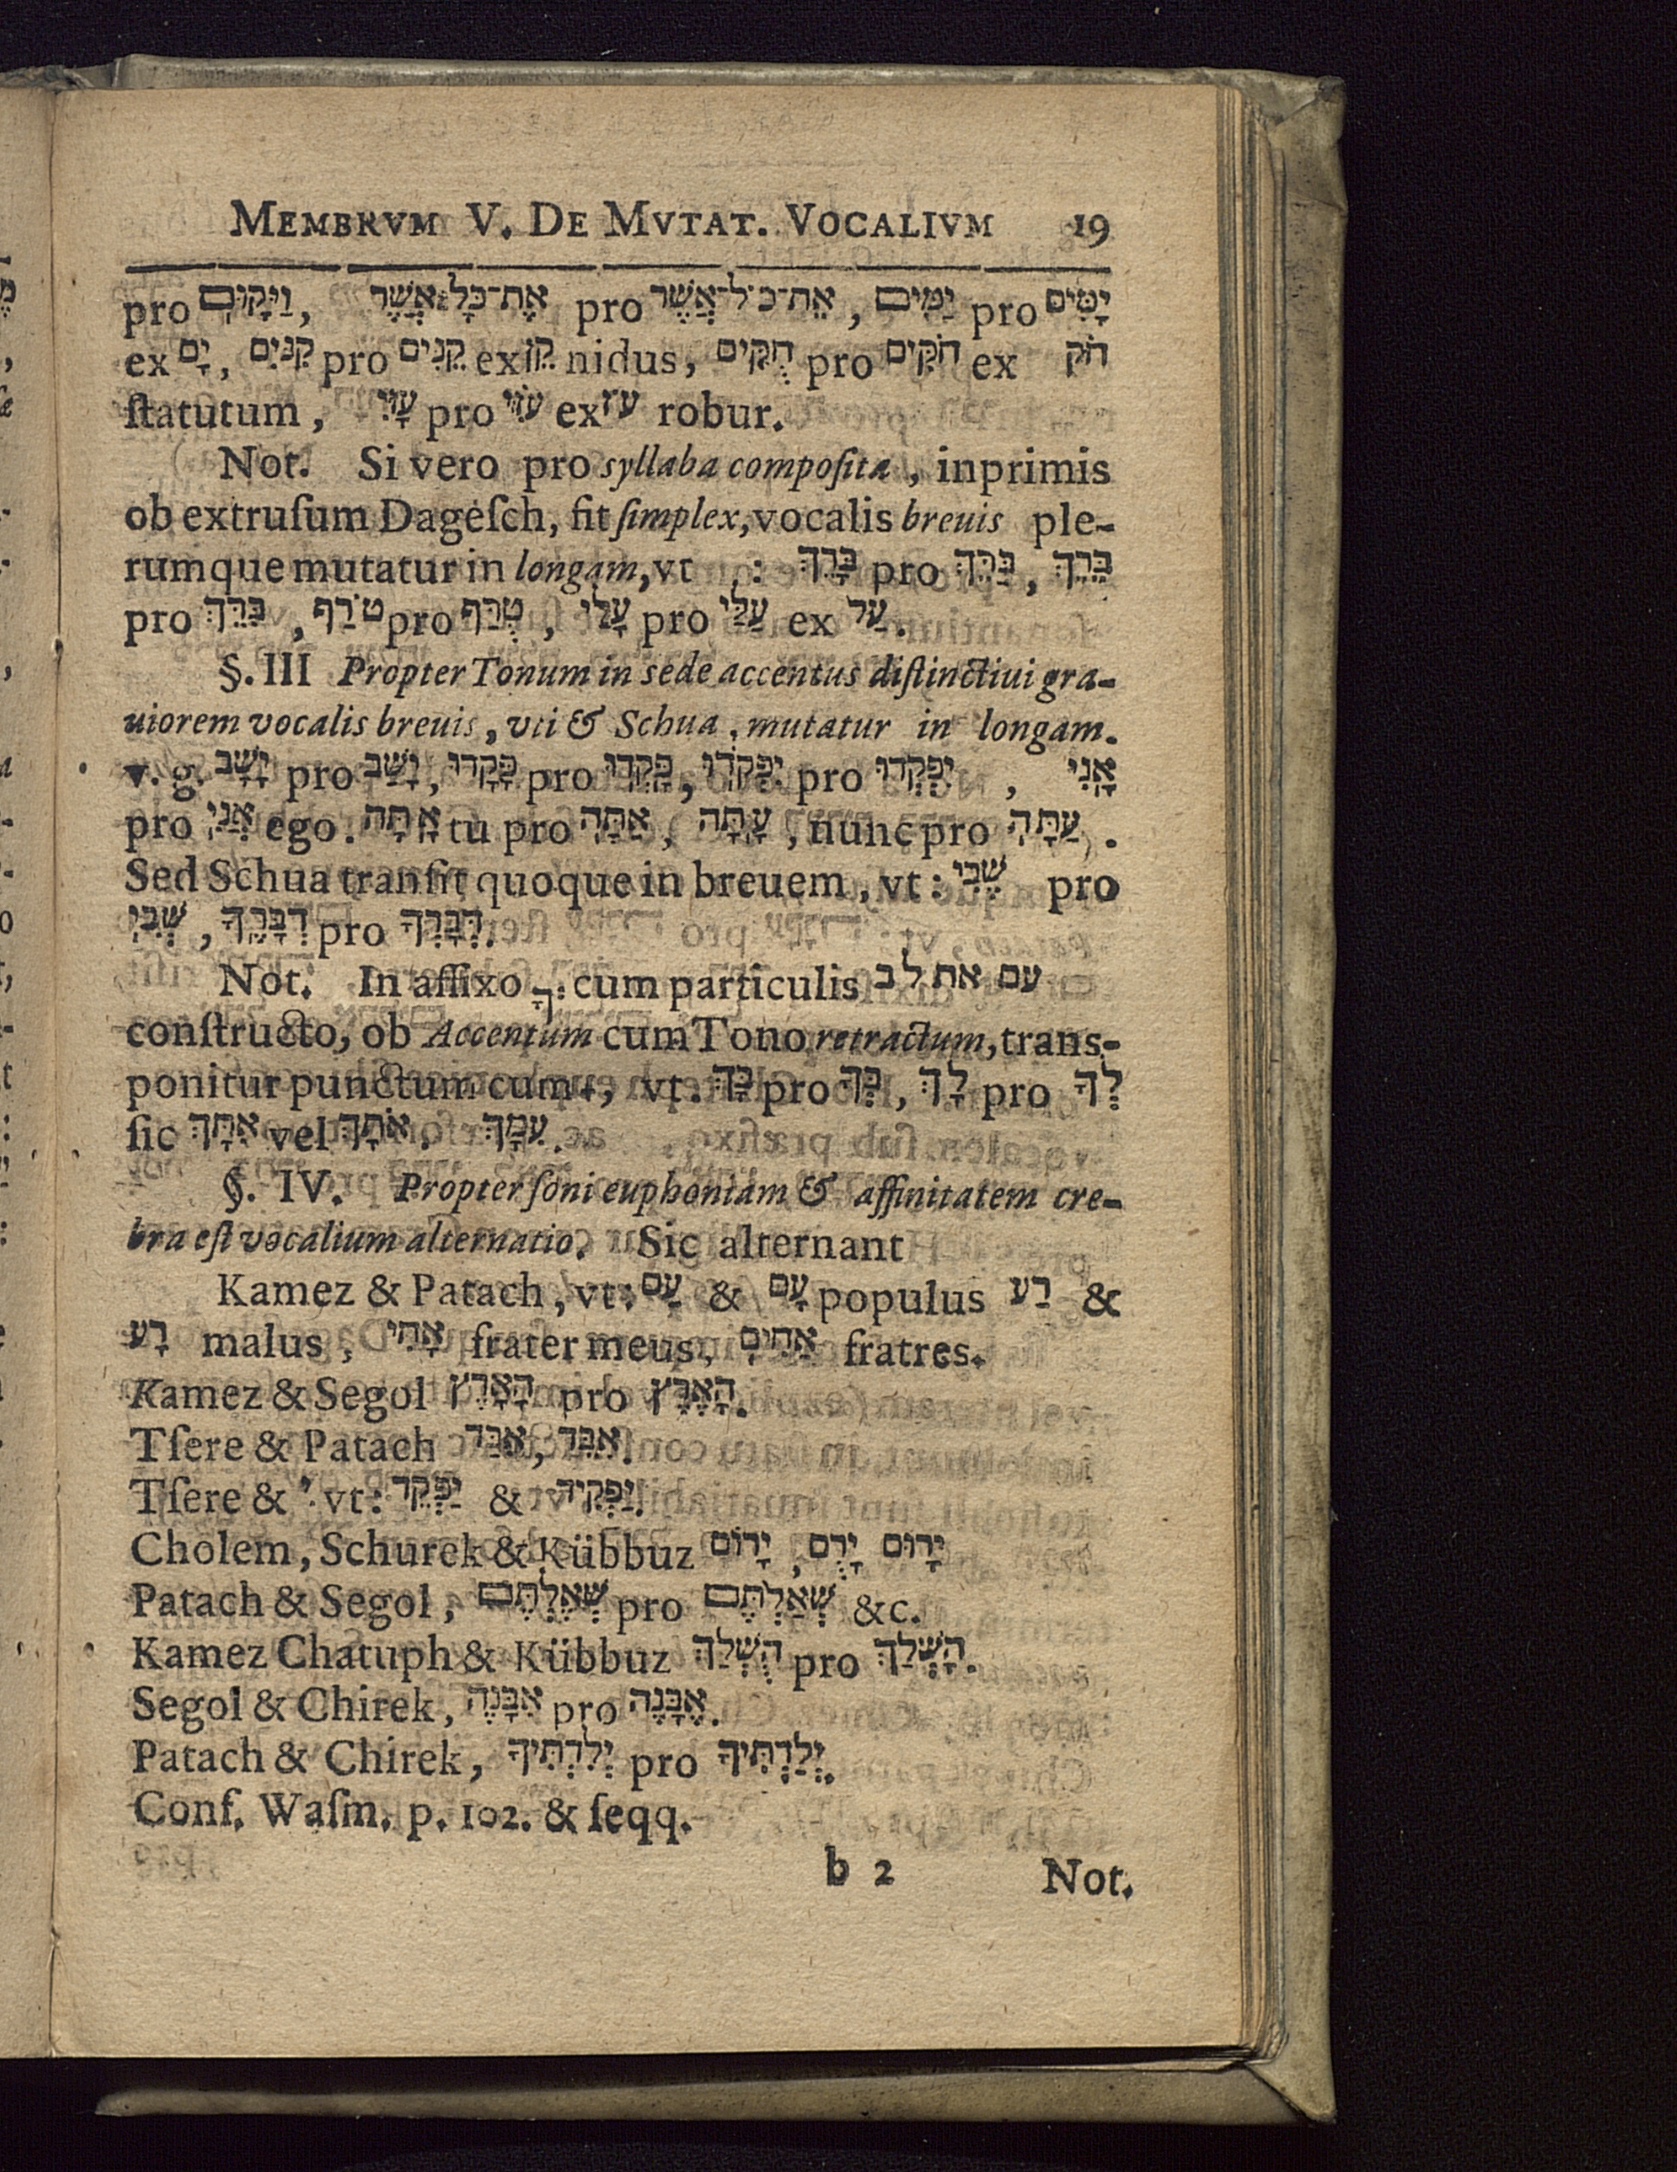 MEMBRVM V. DE MVTAT. VOCALIVM 19
pro וַיָּקוּם, אֶת־כָּל־אֲשֶׁר pro אֵת־כֹּל־אֲשֶׁר, יַמִּים pro יָמִּים
ex יָם, קִנִּים pro קֵנִּים ex קֵן nidus, חֻקִּים pro חֹקִּים ex חֹק
ſtatutum, עָזִּי pro עֹזִּי ex עֹז robur.
Not. Si vero pro ſyllaba compoſita, inprimis
ob extruſum Dageſch, fit ſimplex, vocalis breuis ple-
rumque mutatur in longam, vt : בָּרֵךְ pro בַּרֵּךְ, בֵּרֵךְ
pro בִּרֵּךְ, טֹרַף pro טֻרַּף, עָלַי pro עַלַּי ex עַל.
§. III Propter Tonum in sede accentus diſtinctiui gra-
uiorem vocalis breuis, vti & Schua, mutatur in longam.
v. g. יָשָׁב pro יָשַׁב, פָּקָדוּ pro פָּקְדוּ, יִפְקֹדוּ pro יִפְקְדוּ, אָנִי
pro אֲנִי ego. אָתָּה tu pro אַתָּה, עָתָּה, nunc pro עַתָּה.
Sed Schua tranſit quoque in breuem, vt: שֶׁבִי pro
שְׁבִי, דְּבָרֶךָ pro דְּבָרְךָ.
Not. In affixo ְךָ cum particulis עם את ל ב
conſtructo, ob Accentum cum Tono retractum, trans-
ponitur punctum cum ָ, vt. בָּךְ pro בְּךָ, לָךְ pro לְךָ
ſic אִתָּךְ vel אֹתָךְ. עִמָּךְ.
§. IV. Propter ſoni euphoniam & affinitatem cre-
bra eſt vocalium alternatio. Sic alternant
Kamez & Patach, vt: עַם & עָם populus רַע &
רָע malus, אָחִי frater meus, אַחִים fratres.
Kamez & Segol הָאָרֶץ pro הָאֶרֶץ.
Tſere & Patach אִבַּד, אִבֵּד.
Tſere & ִי vt: יַפְקֵד & יַפְקִיד.
Cholem, Schurek & Kübbuz יָרוֹם, יָרֻם יָרוּם
Patach & Segol, שְׁאֶלְתֶּם pro שְׁאַלְתֶּם &c.
Kamez Chatuph & Kübbuz הֻשְׁלַךְ pro הָשְׁלַךְ.
Segol & Chirek, אִבָּנֶה pro אֶבָּנֶה.
Patach & Chirek, יְלִדְתִּיךָ pro יְלַדְתִּיךָ.
Conf. Waſm. p. 102. & ſeqq.
b 2 Not.